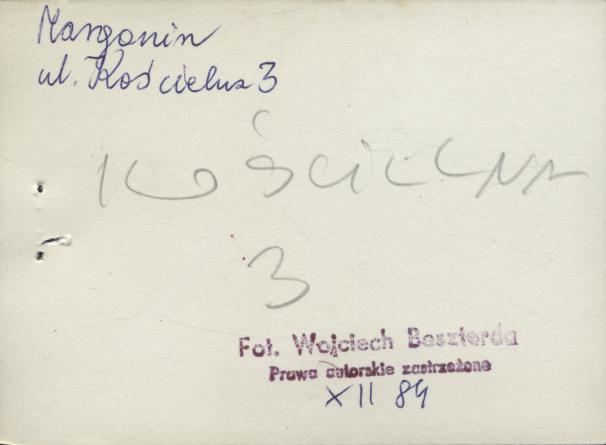 Margonin
ul. Kościelna 3
KOŚCIELNA
3
Fot. Wojciech Beszterda
Prawa autorskie zastrzeżone
XII 84